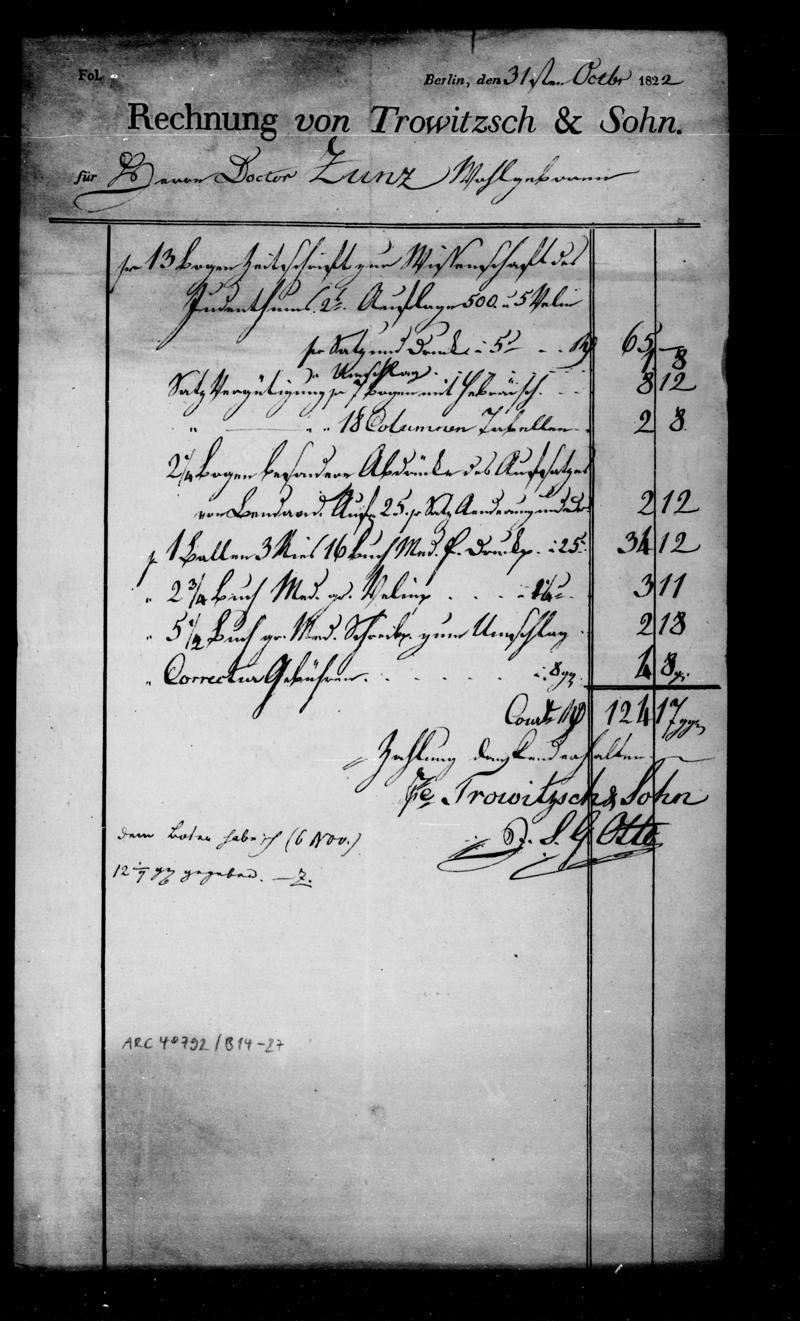 Fol.
Berlin, den 31sten Octbr 1822
Rechnung von Trowitzsch & Sohn.
für Herrn Doctor Zunz Wohlgeboren
pr 13 Bogen Zeitschrift zur Wissenschaft des
Judenthums. 2s. Auflage 500. u 5 Velin
pr Satz und Druck à 5 rt 65 —
" Umschlag 1 8
Satz Vergütigung pr 7 Bogen mit Hebräisch. 8 12
" " 18 Columnen Tabellen 2 8
2 1/4 Bogen besondere Abdrücke des Aufsatzes
von Bendavid. Aufl. 25. pr Satz Aenderung und 2 12
pr 1 Ballen 3 Ries 16 Buch Med. Druckp. à 25 34 12
" 2 3/4 Buch Med. gr. Velinp 3 11
" 5 1/2 Buch gr. Med. Schreibp. zum Umschlag 2 18
" Correctur Gebühren à 8 gr. 4 8 gr
Court rt 124 17 ggr
Zahlung dankend erhalten
Trowitzsch & Sohn
Otto
dem Boten habe ich (6 Nov.)
12 gegeben. — Z.
ARC 4°792 / B14-27